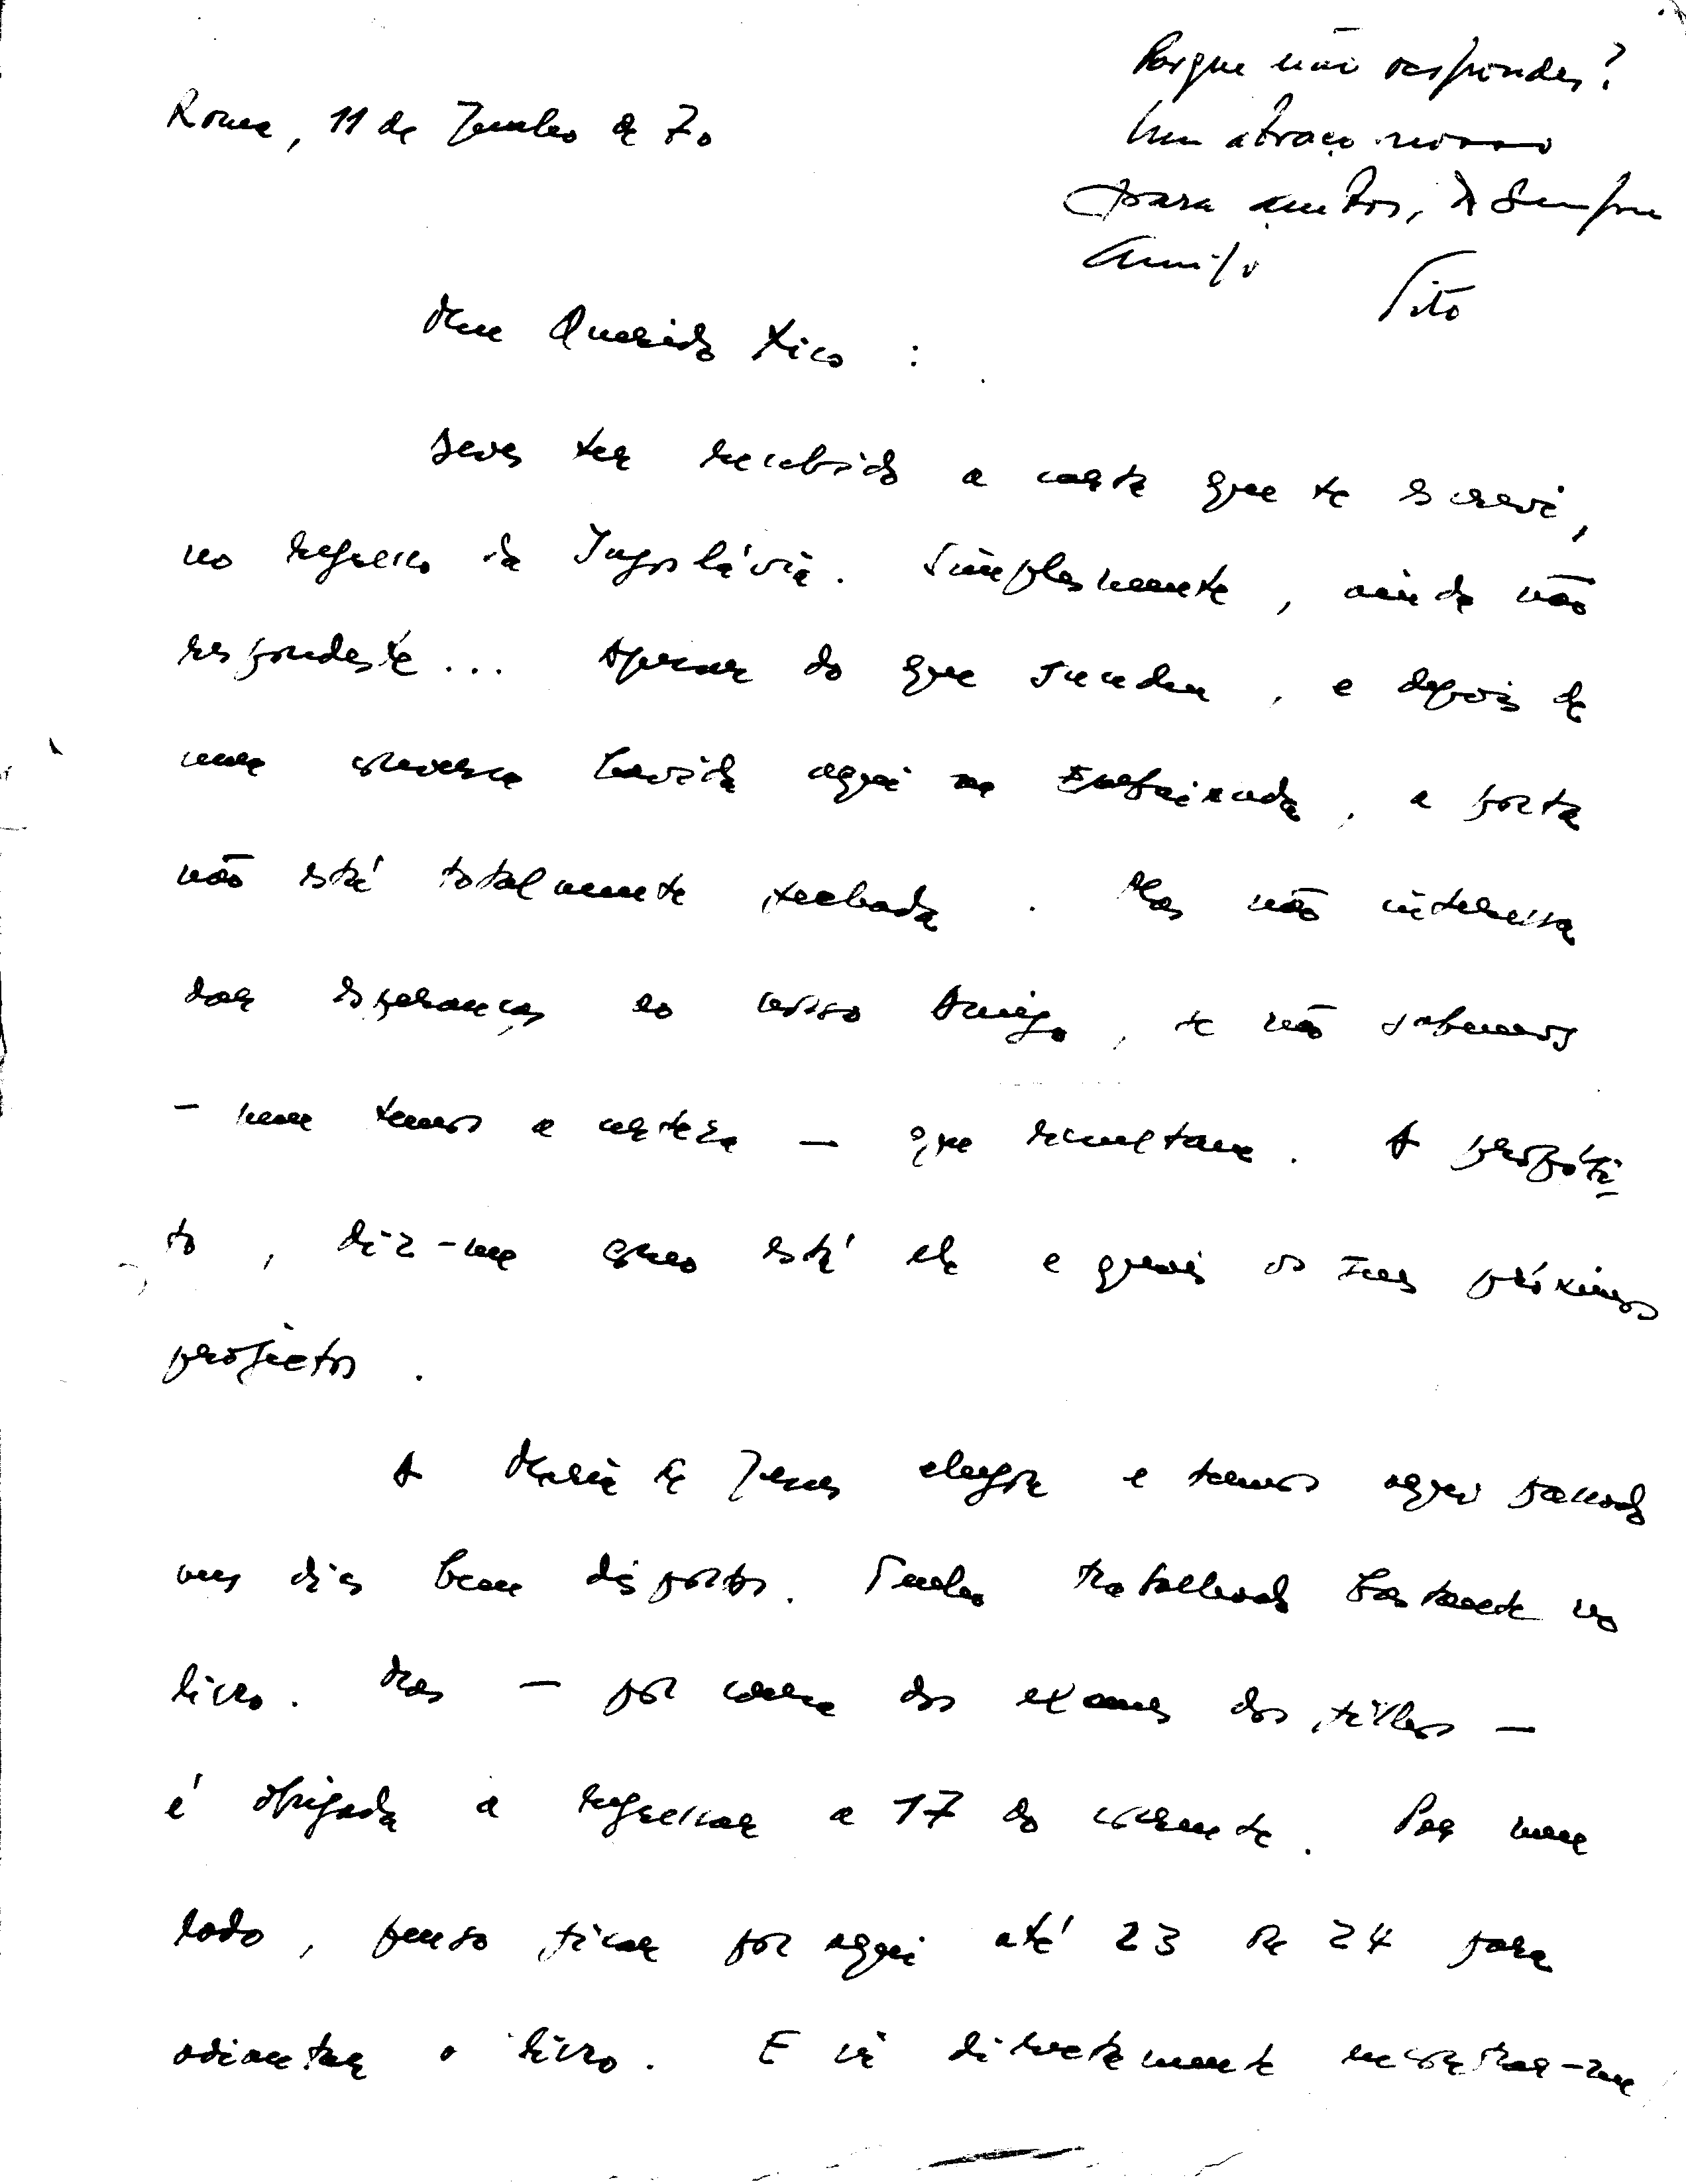 Porque não respondes?
Um abraço nosso
para ambos, do sempre
Amigo
Tito
Roma, 11 de Junho de 70
Meu Querido Xico :
Deves ter recebido a carta que te escrevi,
no regresso da Jugoslávia. Simplesmente, ainda não
respondeste... Apesar do que sucedeu, e depois de
uma conversa havida aqui na Embaixada, a porta
não está totalmente fechada. Mas não interessa
dar esperanças ao nosso Amigo, se não sabemos
- nem temos a certeza - que resultam. A propósi-
to, diz-me como está ele e quais os seus próximos
projectos.
A Maria de Jesus chegou e temos aqui passado
uns dias bem dispostos. Tenho trabalhado bastante no
livro. Mas - por causa dos exames dos filhos -
é obrigada a regressar a 17 do corrente. Por meu
lado, penso ficar por aqui até 23 ou 24 para
adiantar o livro. E ir directamente encontrar-me